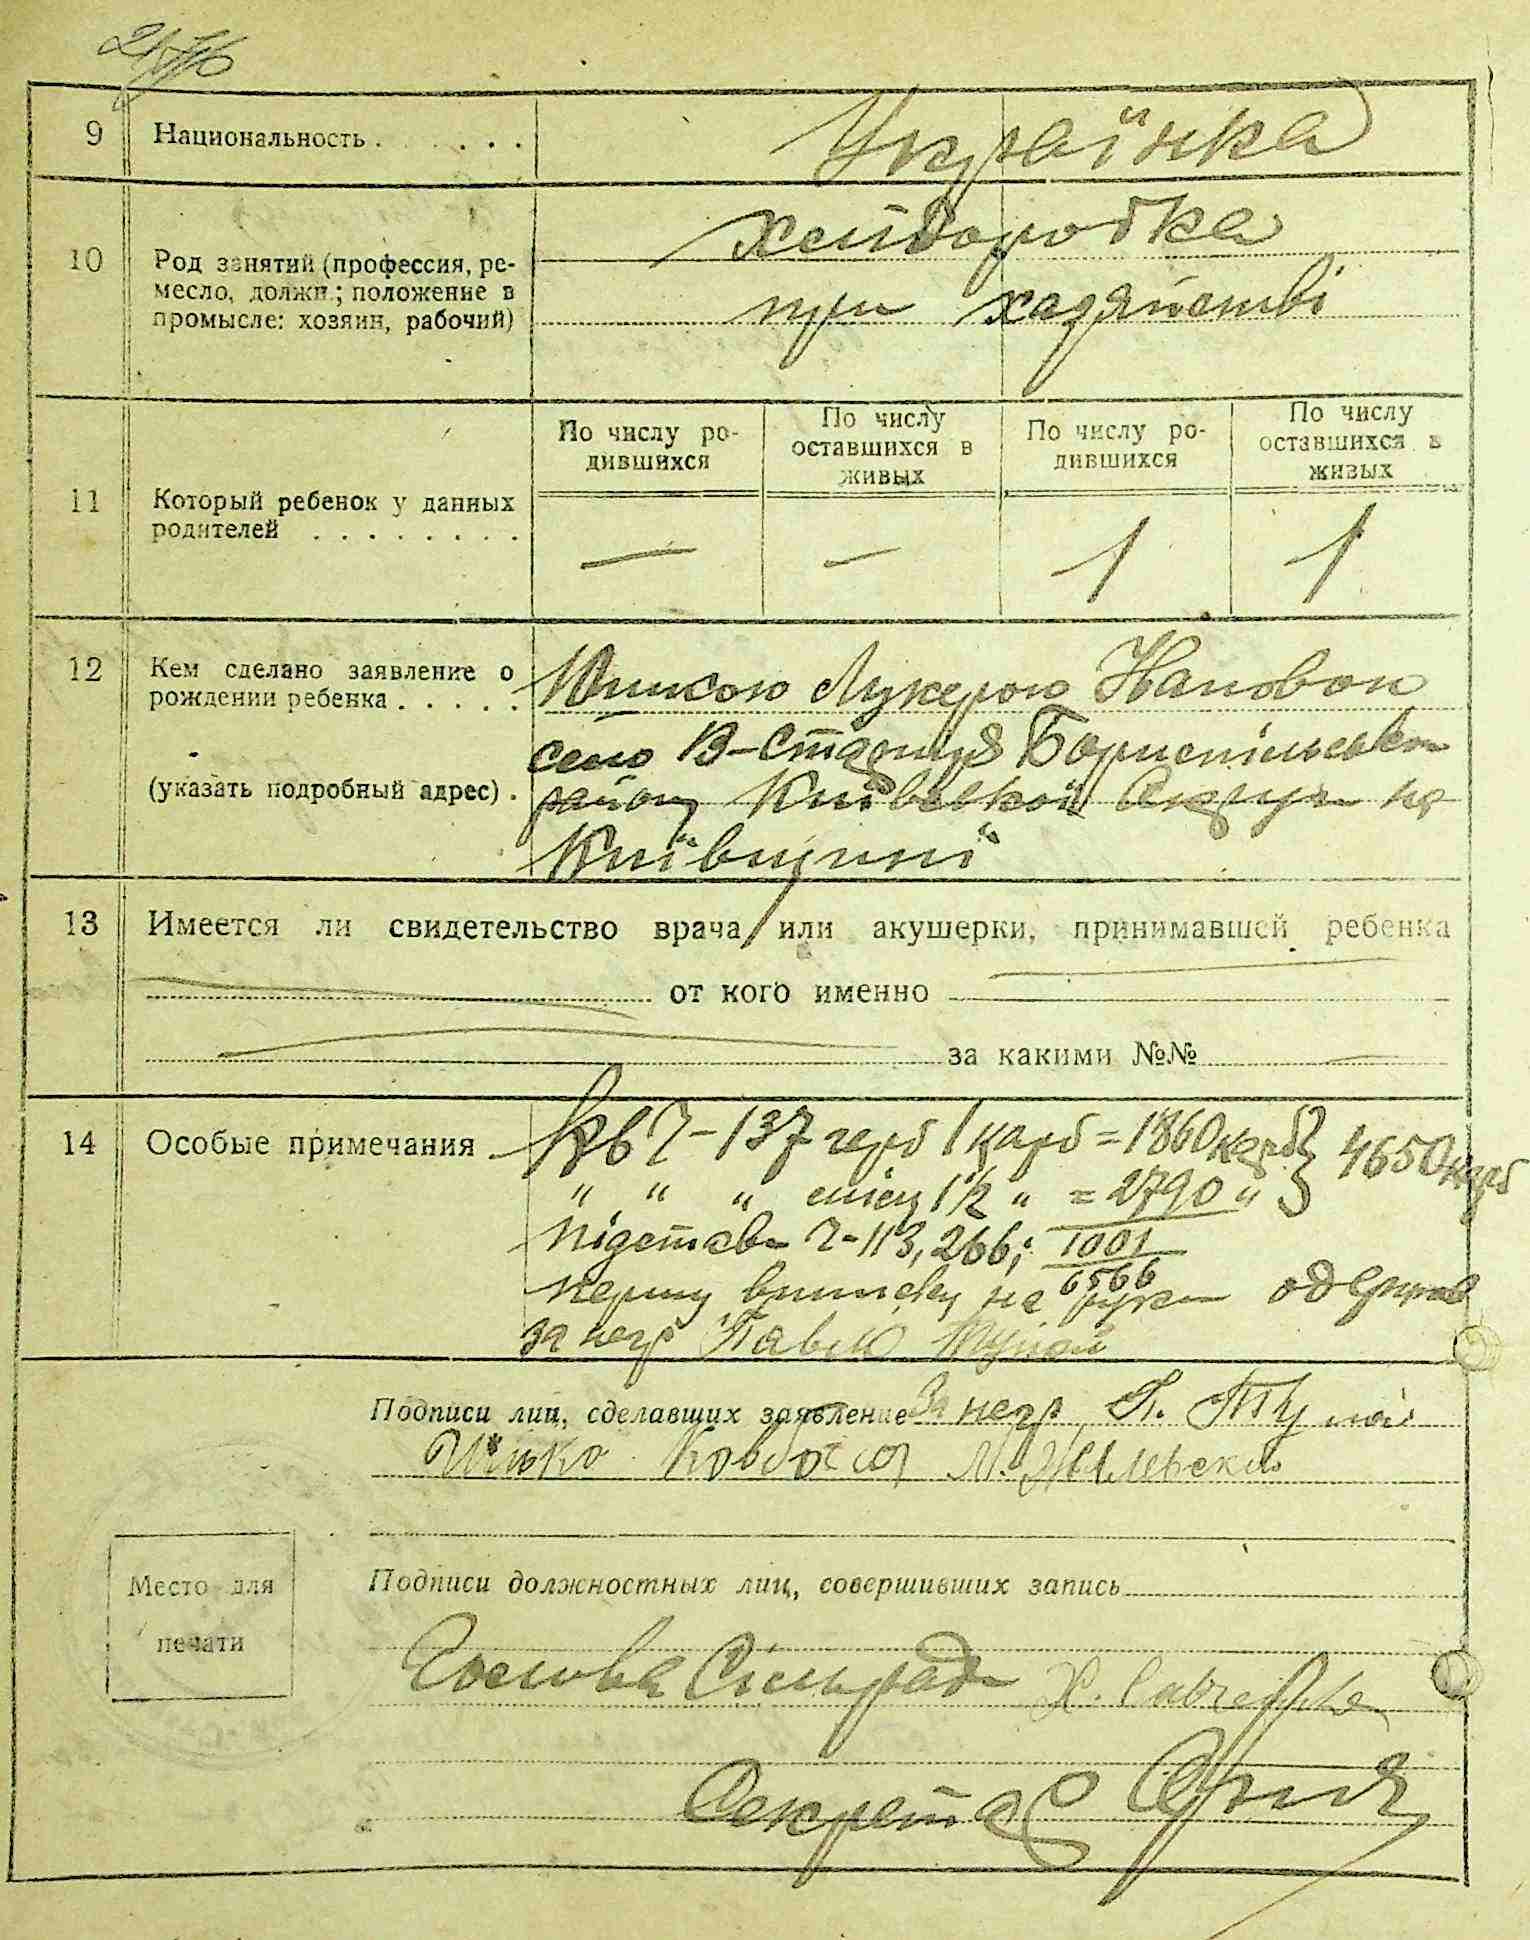 9 Национальность . . . . . . Українка
10 Род занятий (профессия, ре-
месло, должн.; положение в
промысле: хозяин, рабочий)
хліборобка
при хазяйстві
11 Который ребенок у данных
родителей . . . . . . . .
По числу ро-
дившихся
По числу
оставшихся в
живых
По числу ро-
дившихся
По числу
оставшихся в
живых
— — 1 1
12 Кем сделано заявление о
рождении ребенка . . . . .
(указать подробный адрес) .
Лукерою
село В-Стариця Бориспільськ
району Київської Округи на
Київщині
13 Имеется ли свидетельство врача или акушерки, принимавшей ребенка
от кого именно
за какими №№
14 Особые примечания
Кв Ч-137 герб 1 карб = 1860 карб } 4650 карб
" " " місц 1½ " = 2790 "
підстав Ч-113, 266; 1001
6566
першу виписку на руки одержав
за негр Павло
Подписи лиц, сделавших заявление За негр П.
Ілько Ковбаса М.
Место для
печати
Подписи должностных лиц, совершивших запись
Голова Сільради Х.
Секретар